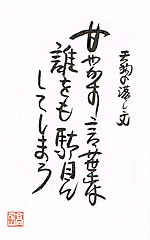 天狗の落し文
甘やかす言葉
誰をも駄目に
してしまう